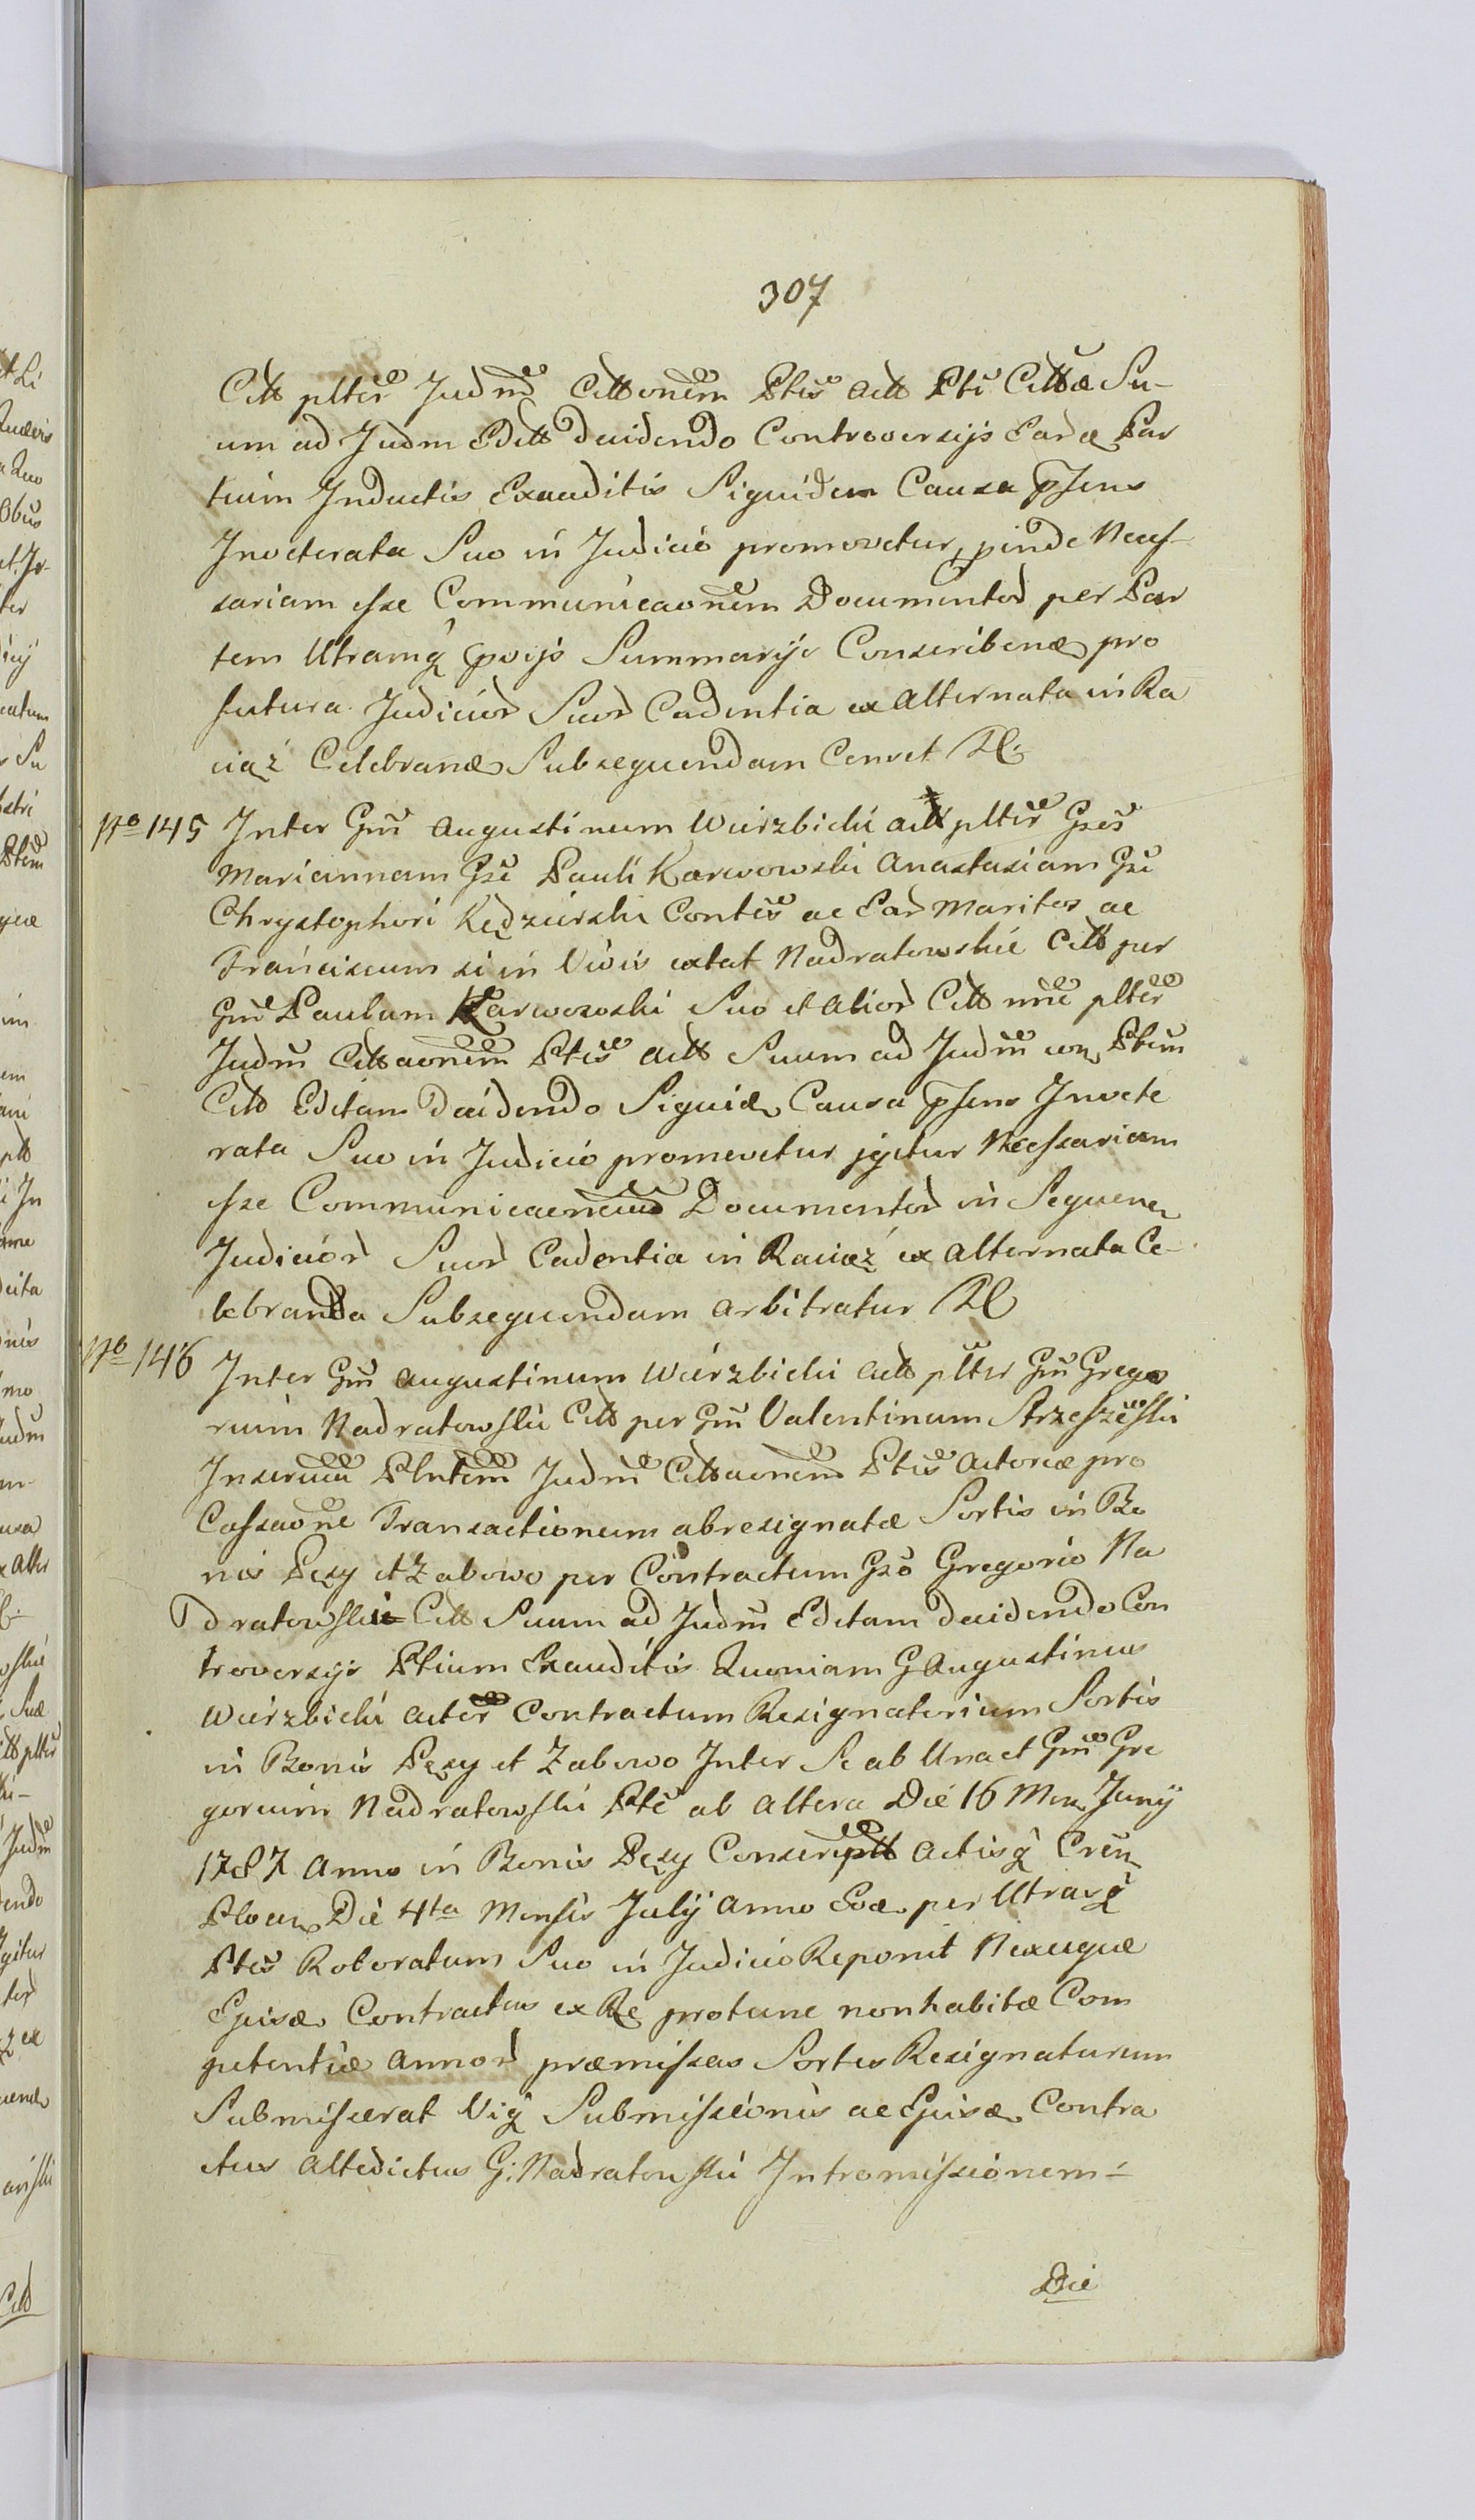 307
Citt pltěr Judm̃ Cittonem̃ Ptis Actt Pti Cittæ Su-
um ad Judm Editt decidendo Controversijs Earde Par
tium Inductis Exauditis Siquidem Causa pſens
Inveterata Suo in Judicio promovetur, pinde Neceſ-
sariam eſse Communicaonem̃ Documentor per Par
tem Utramq̃ Copijs Summarijs Conscribend pro
futura Judicior Suor Cadentia ex Alternata in Ra
ciąż Celebrand Subsequendam Censet
Nº 145 Inter Gm̃ Augustinum Wierzbicki Actt pltir Gses
Mariannam Gse Pauli Karwowski Anastasiam Gse
Chrystophori Kędzierski Contes ac Ear Maritos ac
Franciscum si in Vivis extat Nadratowskie Citt per
Gm̃ Paulum Karwowski Suo et Alior Citt nne pltěr
Judm̃ Cittaonem̃ Ptis Actt Suum ad Judm̃ con Ptem
Citt Editam Decidendo Siquid Causa pſens Invete
rata Suo in Judicio promovetur igitur Neceſsariam
eſse Communicaonem Documentor in Sequen
Judicior Suor Cadentia in Raciąż ex Alternata Ce-
lebranda Subsequendam arbitratur
Nº 146 Inter Gm̃ Augustinum Wierzbicki Actt pltěr Gm̃ Grego
rium Nadratowſki Citt per Gm̃ Valentinum Strzeſzeſki
Judm̃ Cittaonem Ptis Actoreæ pro
Caſsaone Transactionum abresignatæ Sortis in Bo
nis Pęsy et Zabowo per Contractum Gso Gregorio Na
dratowſkie Citt Suum ad Judm̃ Editam decidendo Con
troversijs Ptium Exauditis Quoniam G Augustinus
Wierzbicki Actor Contractum Resignatorium Sortis
in Bonis Pęsy et Zabowo Inter Se ab Una et Gm̃ Gre
gorium Nadratowſki Pte ab altera Die 16 Men Junÿ
1787 Anno in Bonis Pęsy Conscriptt Actisq̃
Plocen Die 4ta Menſis Julÿ Anno Eod per Utrasq̃
Ptes Roboratum Suo in Judicio Reponit Nexuque
Ejusd Contractus ex Re protunc non habitæ Com
petentiæ Annor præmiſsas Sortes Resignaturum
Submiſserat Vig Submiſsionis ac Ejusd Contra
ctus Altedictus G: Nadratowſki Intromiſsionem-
Die